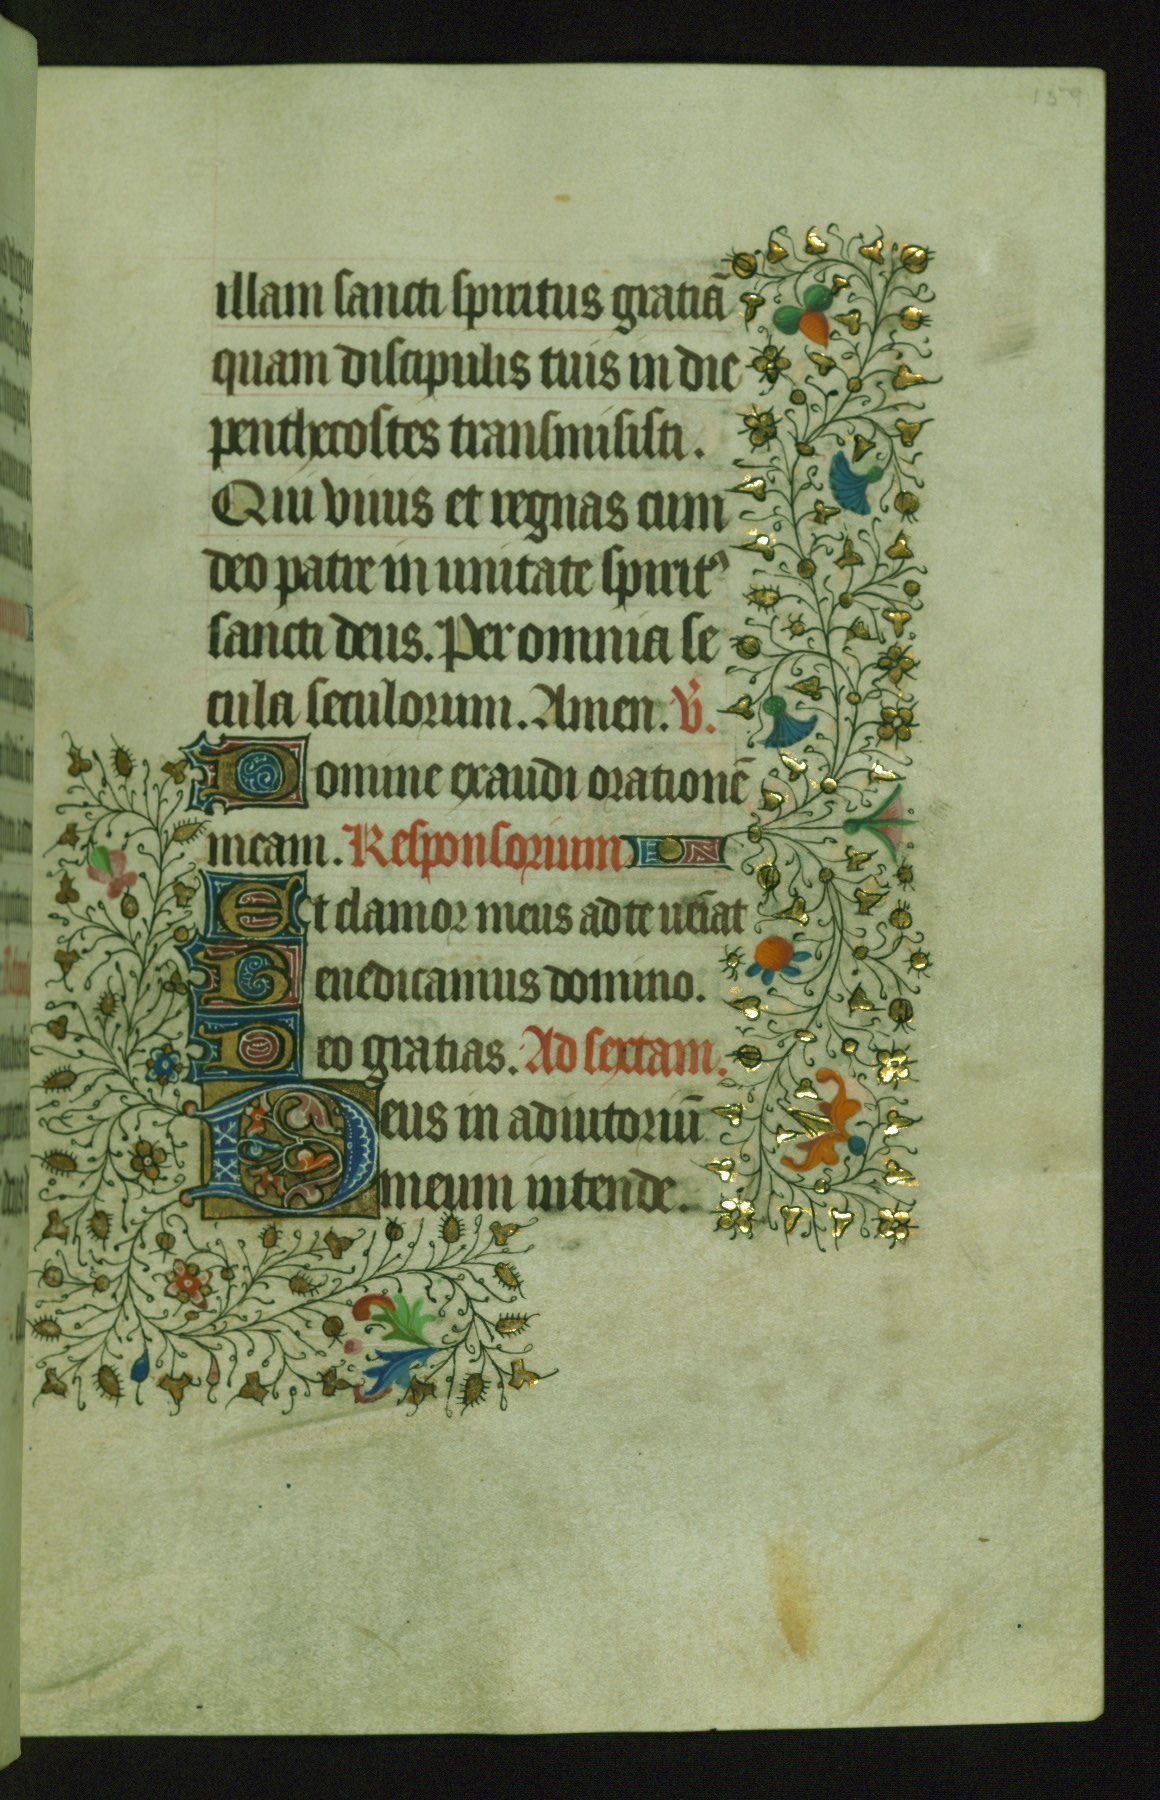 159
illam sancti spiritus gratiā
quam discipulis tuis in die
penthecostes transmisisti.
Qui viuis et regnas cum
deo patre in unitate spiritꝰ
sancti deus. Per omnia se
cula seculorum. Amen. V̄.
Domine exaudi orationē
meam. Responsorium
Et clamor meus ad te ueīat
Benedicamus domino.
Deo gratias. Ad sextam.
Deus in adiutoriū
meum intende.